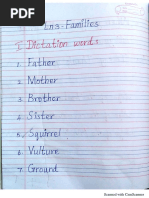 Ln 3 - Families
I Dictation words
1. Father
2. Mother
3. Brother
4. Sister
5. Squirrel
6. Vulture
7. Ground
Scanned with CamScanner